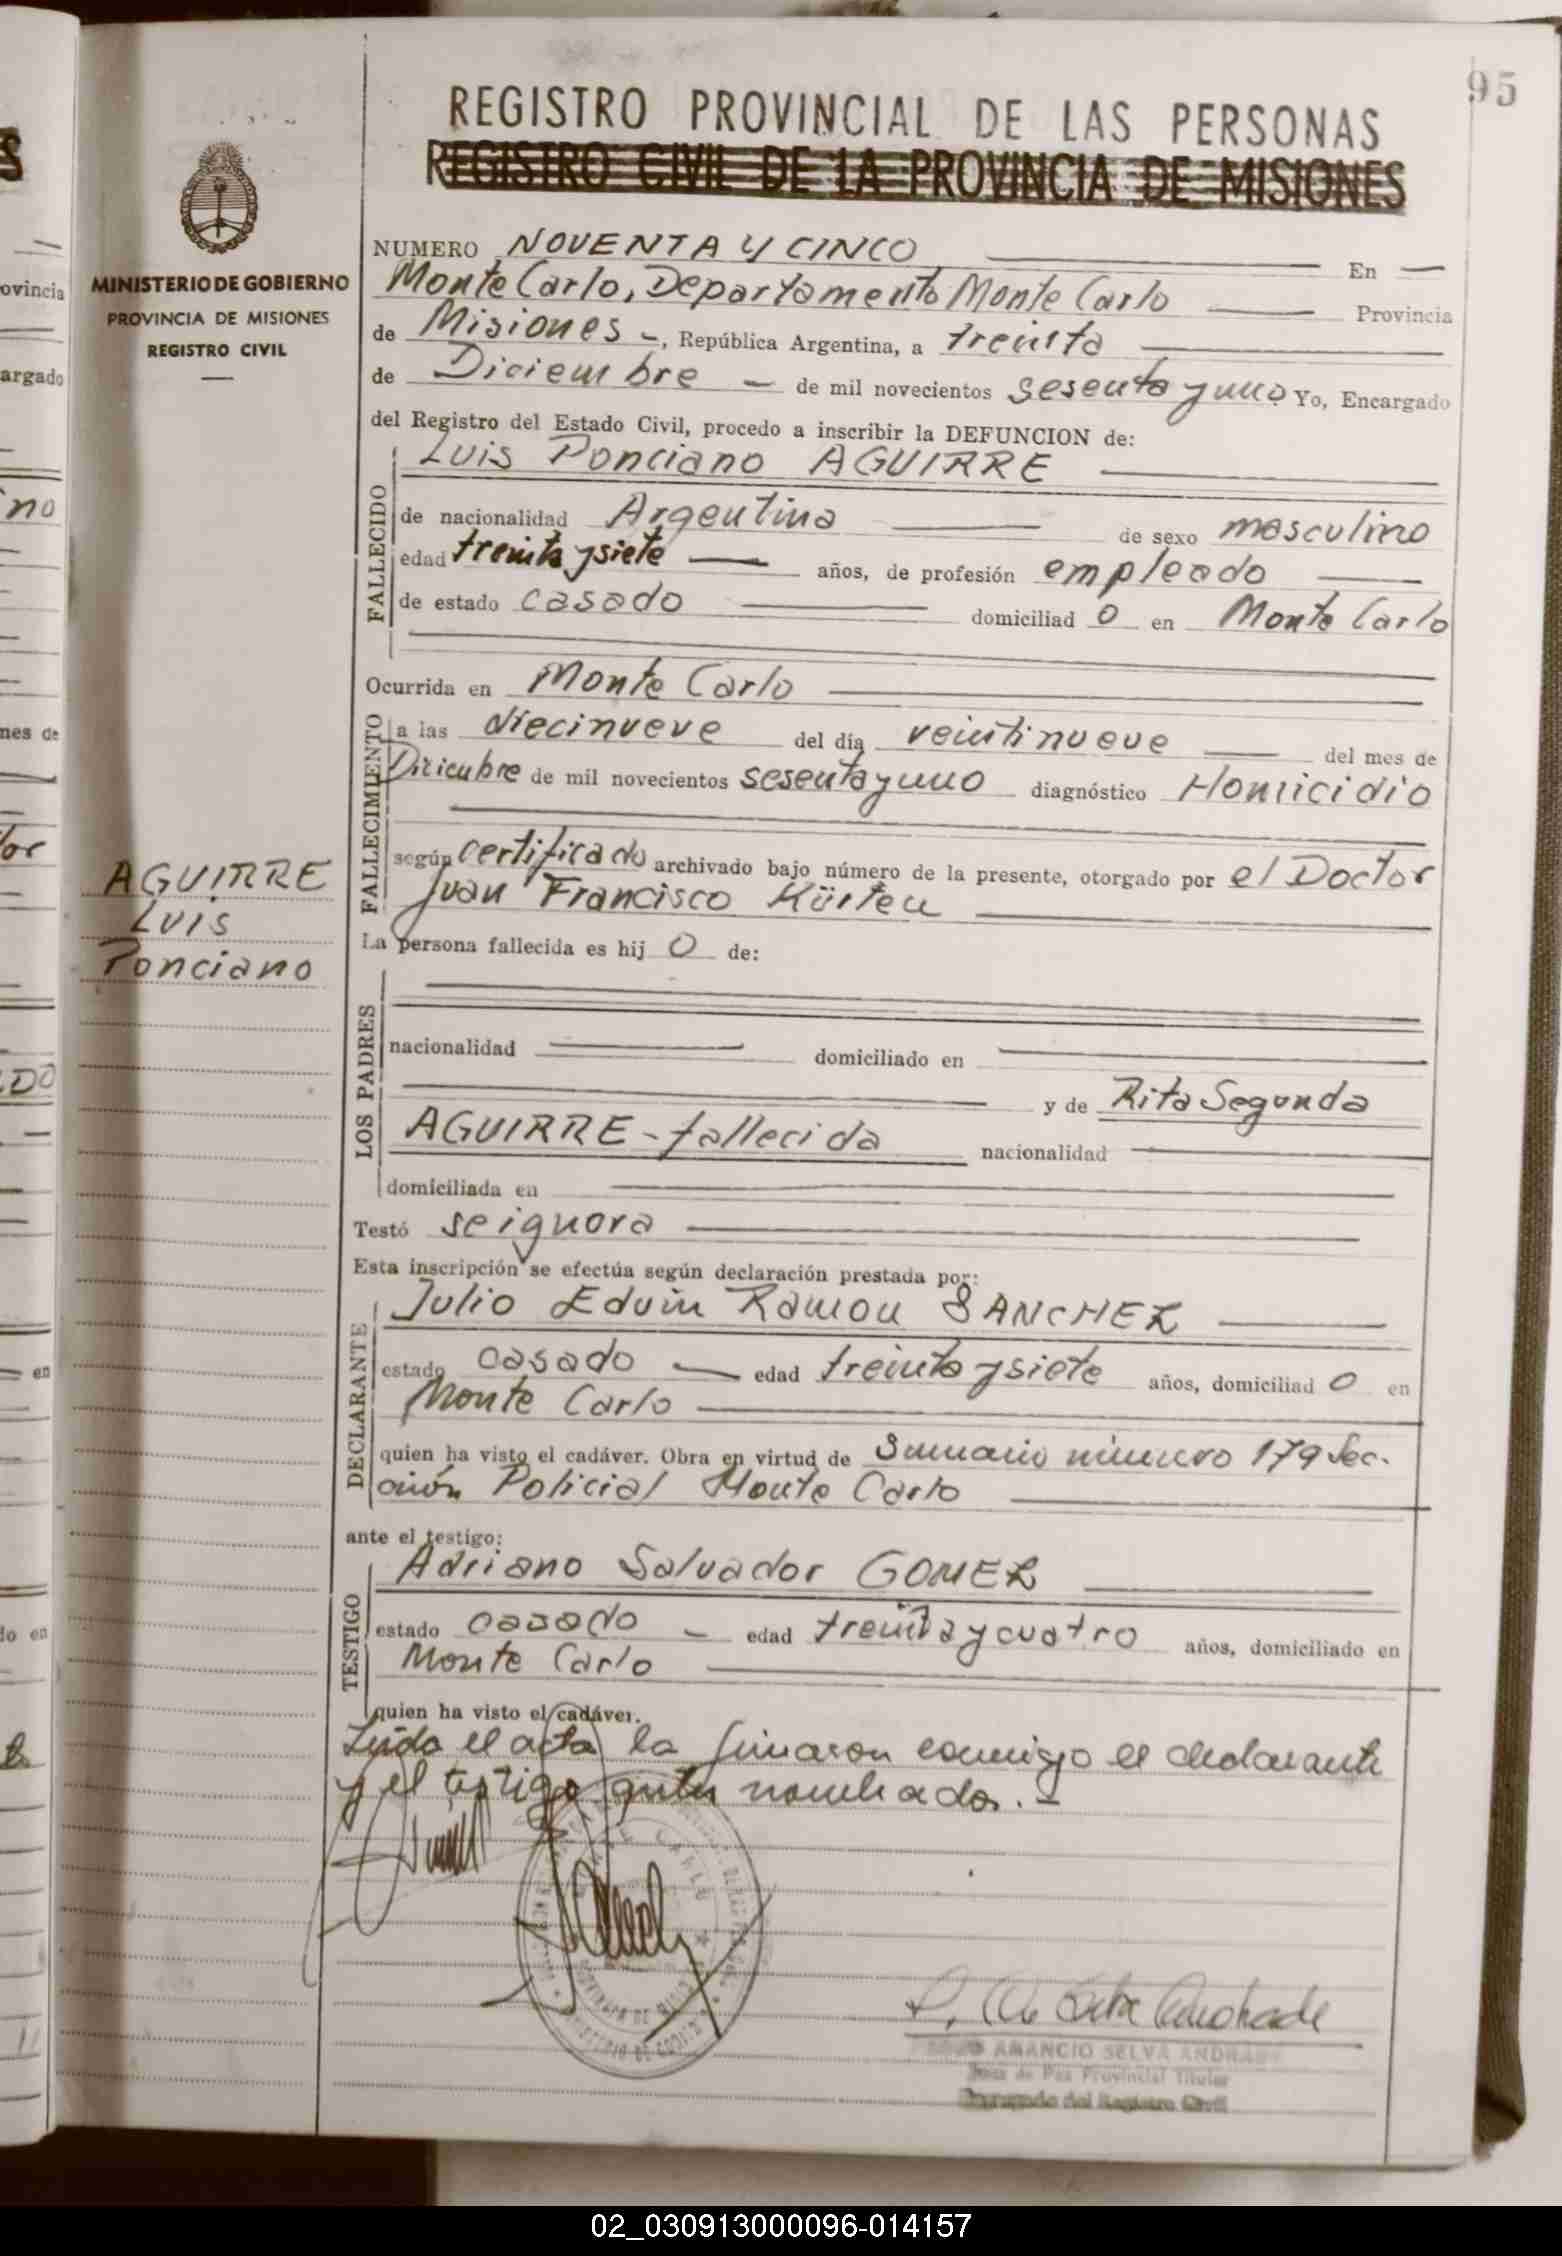 95
REGISTRO PROVINCIAL DE LAS PERSONAS
REGISTRO CIVIL DE LA PROVINCIA DE MISIONES
MINISTERIO DE GOBIERNO
PROVINCIA DE MISIONES
REGISTRO CIVIL
NUMERO NOVENTA Y CINCO En
Monte Carlo, Departamento Monte Carlo Provincia
de Misiones -, República Argentina, a treinta
de Diciembre - de mil novecientos sesenta y uno Yo, Encargado
del Registro del Estado Civil, procedo a inscribir la DEFUNCION de:
FALLECIDO
Luis Ponciano AGUIRRE
de nacionalidad Argentina de sexo masculino
edad treinta y siete años, de profesión empleado
de estado casado domiciliad o en Monte Carlo
Ocurrida en Monte Carlo
FALLECIMIENTO
a las diecinueve del día veintinueve del mes de
Diciembre de mil novecientos sesenta y uno diagnóstico Homicidio
según certificado archivado bajo número de la presente, otorgado por el Doctor
Juan Francisco Kürten
AGUIRRE
Luis
Ponciano
La persona fallecida es hij o de:
LOS PADRES
nacionalidad domiciliado en
y de Rita Segunda
AGUIRRE - fallecida nacionalidad
domiciliada en
Testó se ignora
Esta inscripción se efectúa según declaración prestada por:
DECLARANTE
Julio Edvin Ramon SANCHEZ
estado casado - edad treinta y siete años, domiciliad o en
Monte Carlo
quien ha visto el cadáver. Obra en virtud de Sumario número 179 Sec-
ción Policial Monte Carlo
ante el testigo:
TESTIGO
Adriano Salvador GOMEZ
estado casado - edad treinta y cuatro años, domiciliado en
Monte Carlo
quien ha visto el cadáver.
Leida el acta la firmaron conmigo el declarante
y el testigo antes nombrados. -
MONTE CARLO
AMANCIO SELVA ANDRADE
Juez de Paz Provincial Titular
Encargado del Registro Civil
02_030913000096-014157